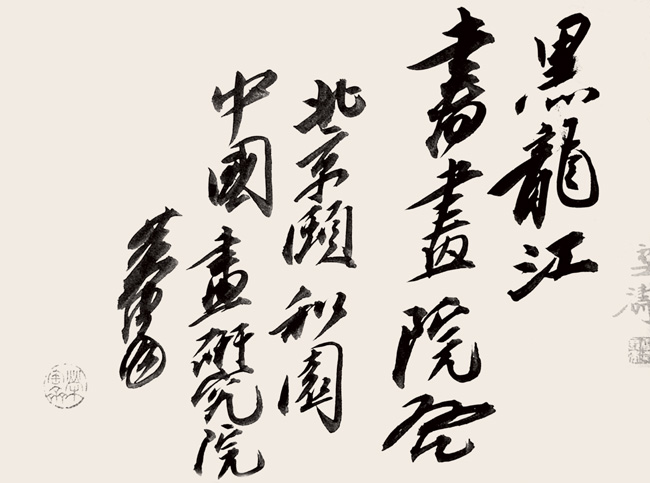 黑龍江
書畫院
北京頤和園
中國畫研究院